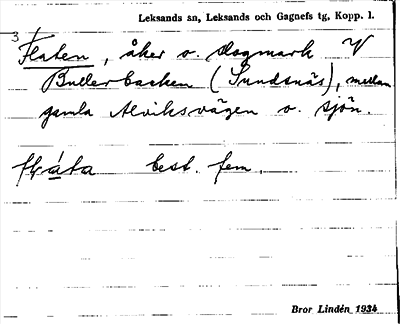 Leksands sn, Leksands och Gagnefs tg, Kopp. l.
3/
Flaten, åker o. slogmark V
Bullerbacken (Sundsnäs), mellan
gamla Alviksvägen o. sjön.
best. fem.
Bror Lindén 1934